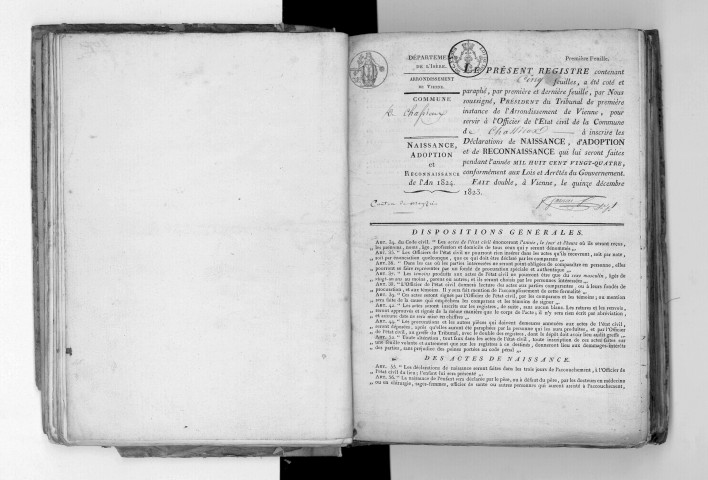 DÉPARTEMENT
DE L'ISÈRE.
ARRONDISSEMENT
DE VIENNE.
COMMUNE
de Chassieux
NAISSANCE,
ADOPTION
et
RECONNAISSANCE
de l'An 1824.
Canton de meyzieu
Première Feuille.
LE PRÉSENT REGISTRE contenant
Cinq feuilles, a été coté et
paraphé, par première et dernière feuille, par Nous
soussigné, PRÉSIDENT du Tribunal de première
instance de l'Arrondissement de Vienne, pour
servir à l'Officier de l'Etat civil de la Commune
de Chassieux à inscrire les
Déclarations de NAISSANCE, d'ADOPTION
et de RECONNAISSANCE qui lui seront faites
pendant l'année MIL HUIT CENT VINGT-QUATRE,
conformément aux Lois et Arrêtés du Gouvernement.
FAIT double, à Vienne, le quinze décembre
1823.
DISPOSITIONS GÉNÉRALES.
ART. 34. du Code civil. " Les actes de l'état civil énonceront l'année, le jour et l'heure où ils seront reçus,
" les prénoms, noms, âge, profession et domicile de tous ceux qui y seront dénommés "
ART. 35. " Les Officiers de l'état civil ne pourront rien insérer dans les actes qu'ils recevront, soit par note,
" soit par énonciation quelconque, que ce qui doit être déclaré par les comparans "
ART. 36. " Dans les cas où les parties intéressées ne seront point obligées de comparaître en personne, elles
" pourront se faire représenter par un fondé de procuration spéciale et authentique "
ART. 37. " Les témoins produits aux actes de l'état civil ne pourront être que du sexe masculin, âgés de
" vingt-un ans au moins, parens ou autres; et ils seront choisis par les personnes intéressées "
ART. 38. " L'Officier de l'état civil donnera lecture des actes aux parties comparantes, ou à leurs fondés de
" procuration, et aux témoins. Il y sera fait mention de l'accomplissement de cette formalité "
ART. 39. " Ces actes seront signés par l'Officier de l'état civil, par les comparans et les témoins; ou mention
" sera faite de la cause qui empêchera les comparans et les témoins de signer "
ART. 42. " Les actes seront inscrits sur les registres, de suite, sans aucun blanc. Les ratures et les renvois,
" seront approuvés et signés de la même manière que le corps de l'acte; il n'y sera rien écrit par abréviation,
" et aucune date ne sera mise en chiffres "
ART. 44. " Les procurations et les autres pièces qui doivent demeurer annexées aux actes de l'état civil,
" seront déposées, après qu'elles auront été paraphées par la personne qui les aura produites, et par l'Officier
" de l'état civil, au greffe du Tribunal, avec le double des registres, dont le dépôt doit avoir lieu audit greffe "
ART. 52. " Toute altération, tout faux dans les actes de l'état civil, toute inscription de ces actes faite sur
" une feuille volante et autrement que sur les registres à ce destinés, donneront lieu aux dommages-intérêts
" des parties, sans préjudice des peines portées au code pénal "
DES ACTES DE NAISSANCE.
ART. 55. " Les déclarations de naissance seront faites dans les trois jours de l'accouchement, à l'Officier de
" l'état civil du lieu; l'enfant lui sera présenté "
ART. 56. " La naissance de l'enfant sera déclarée par le père, ou à défaut du père, par les docteurs en médecine
" ou en chirurgie, sages-femmes, officier de santé ou autres personnes qui auront assisté à l'accouchement,